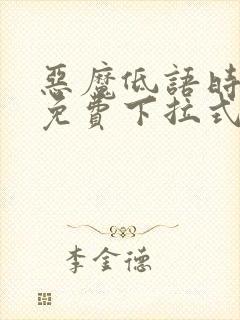 惡魔低語時
免費下拉式
李金德